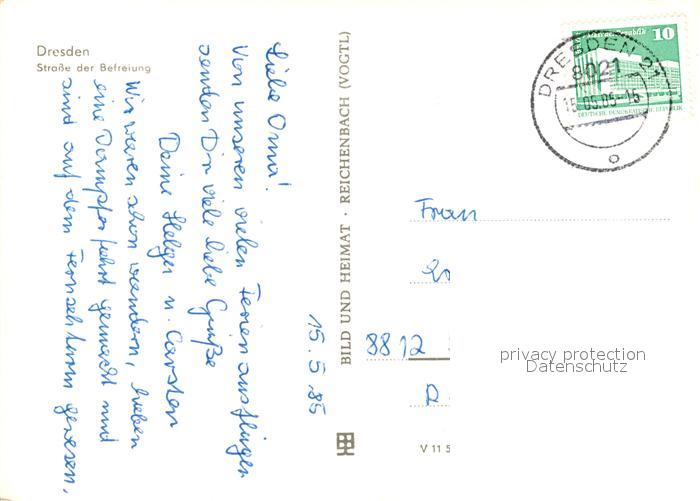 Dresden
Straße der Befreiung
15.5.85
Liebe Oma!
Von unseren vielen Ferienausflügen
senden Dir viele liebe Grüße
Deine Helga u. Carsten
Wir waren schon wandern, haben
eine Dampferfahrt gemacht und
sind auf dem Fernsehturm gewesen.
BILD UND HEIMAT · REICHENBACH (VOGTL)
10
DEUTSCHE DEMOKRATISCHE REPUBLIK
DRESDEN 21
8021
15.05.85-15
Frau
8812
privacy protection
Datenschutz
V 11 5